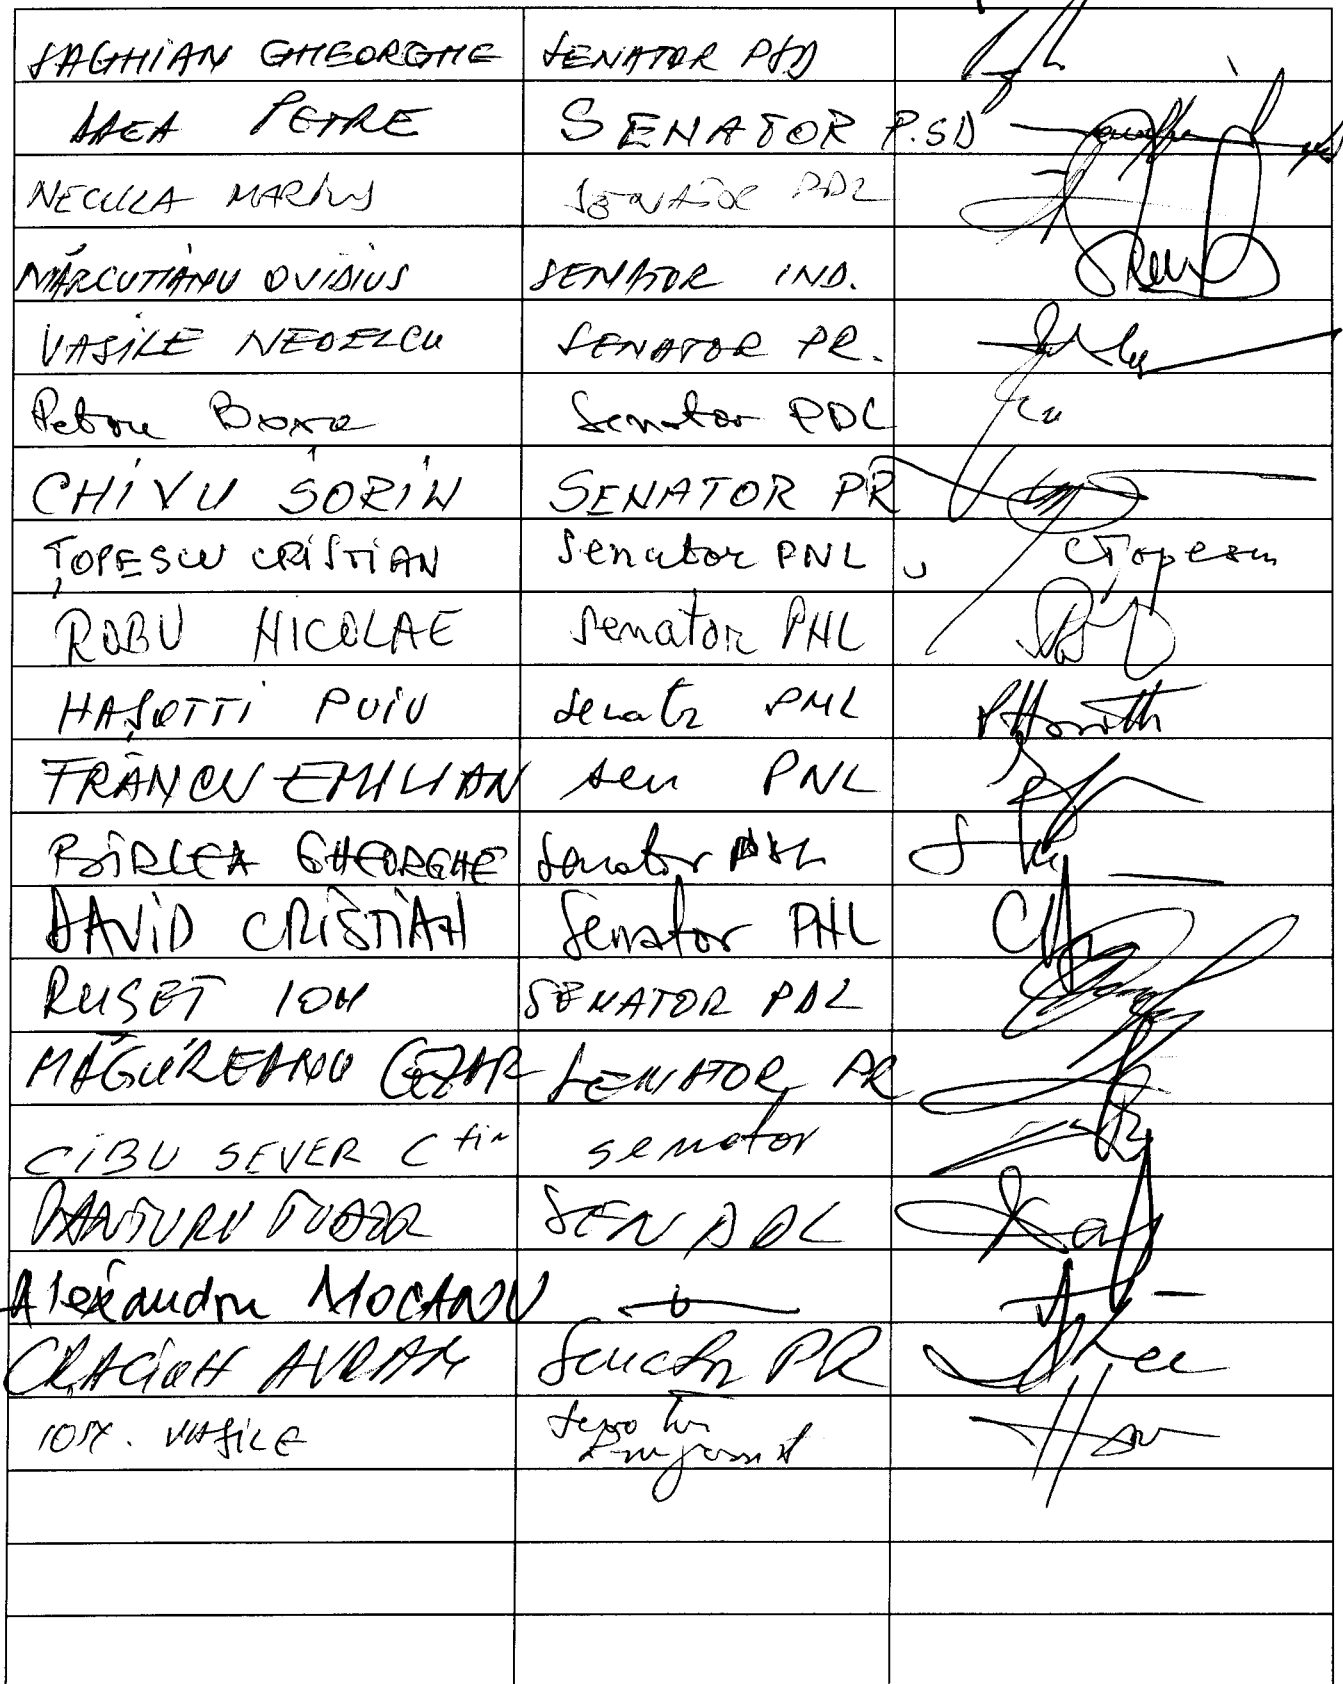 SAGHIAN GHEORGHE SENATOR PSD
DAEA PETRE SENATOR P.SD
NECULA MARIUS SENATOR PDL
MĂRCUȚIANU OVIDIUS SENATOR IND.
VASILE NEDELCU SENATOR PR.
Petru Basa Senator PDL
CHIVU SORIN SENATOR PR
ȚOPESCU CRISTIAN Senator PNL CȚopescu
ROBU NICOLAE Senator PNL
HAȘOTTI PUIU Senator PNL
FRÂNCU EMILIAN sen PNL
BÎRLEA GHEORGHE Senator
DAVID CRISTIAN Senator PNL
RUSET ION SENATOR PDL
MĂGUREANU CEZAR SENATOR PR
CIBU SEVER Ctin senator
PANȚURU TUDOR SEN PDL
Alexandru MOCANU
CRĂCIUN AVRAM Senator PR
ION VASILE Senator